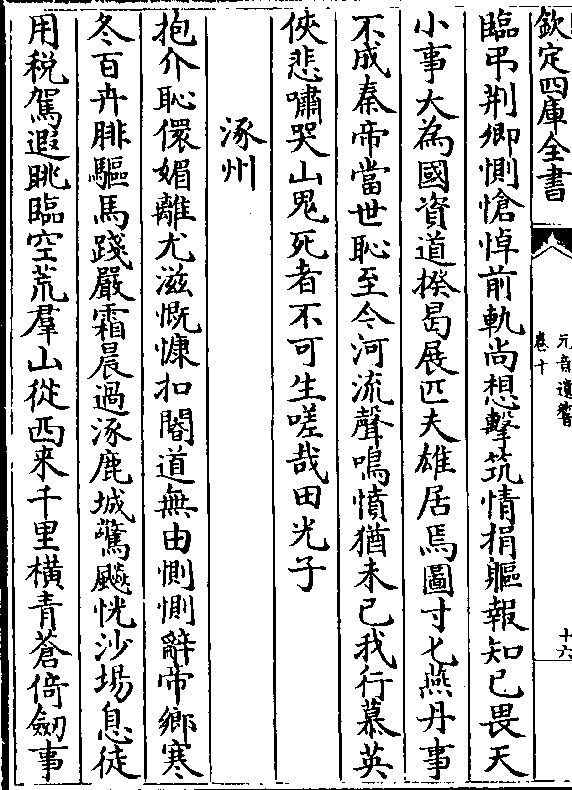 欽定四庫全書
元音遺響
卷十
十六
臨弔荆卿惻愴悼前軌尚想擊筑情捐軀報知已畏天
小事大為國資道揆曷展匹夫雄居焉圖寸匕燕丹事
不成秦帝當世恥至今河流聲鳴憤猶未已我行慕英
俠悲嘯哭山鬼死者不可生嗟哉田光子
涿州
抱介恥儇媚離尤滋慨慷扣閽道無由惻惻辭帝鄉寒
冬百卉腓驅馬踐嚴霜晨過涿鹿城驚飈恍沙場息徒
用税駕遐眺臨空荒羣山從西来千里橫青蒼倚劒事